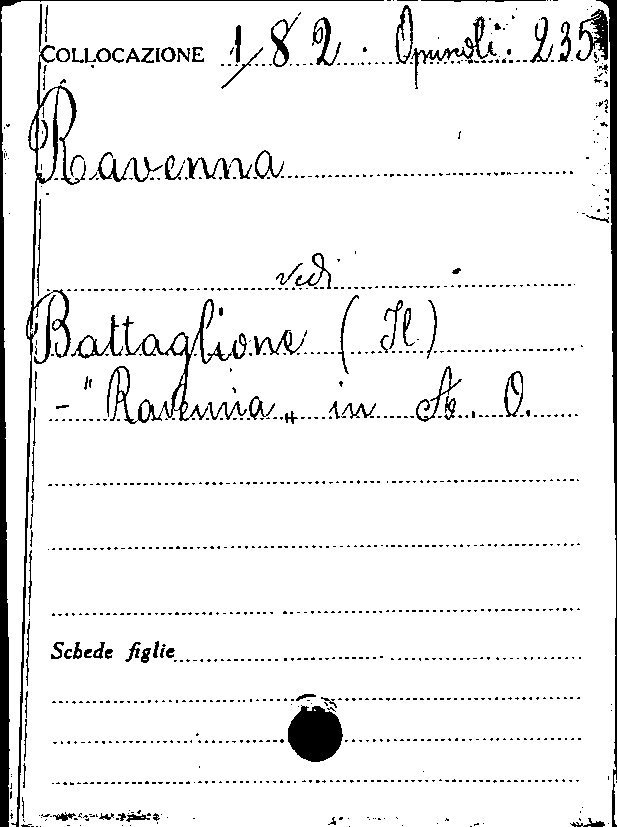 COLLOCAZIONE 1/82. Opuscoli. 235
Ravenna
vedi
Battaglione (Il)
- "Ravenna„ in A. O.
Schede figlie